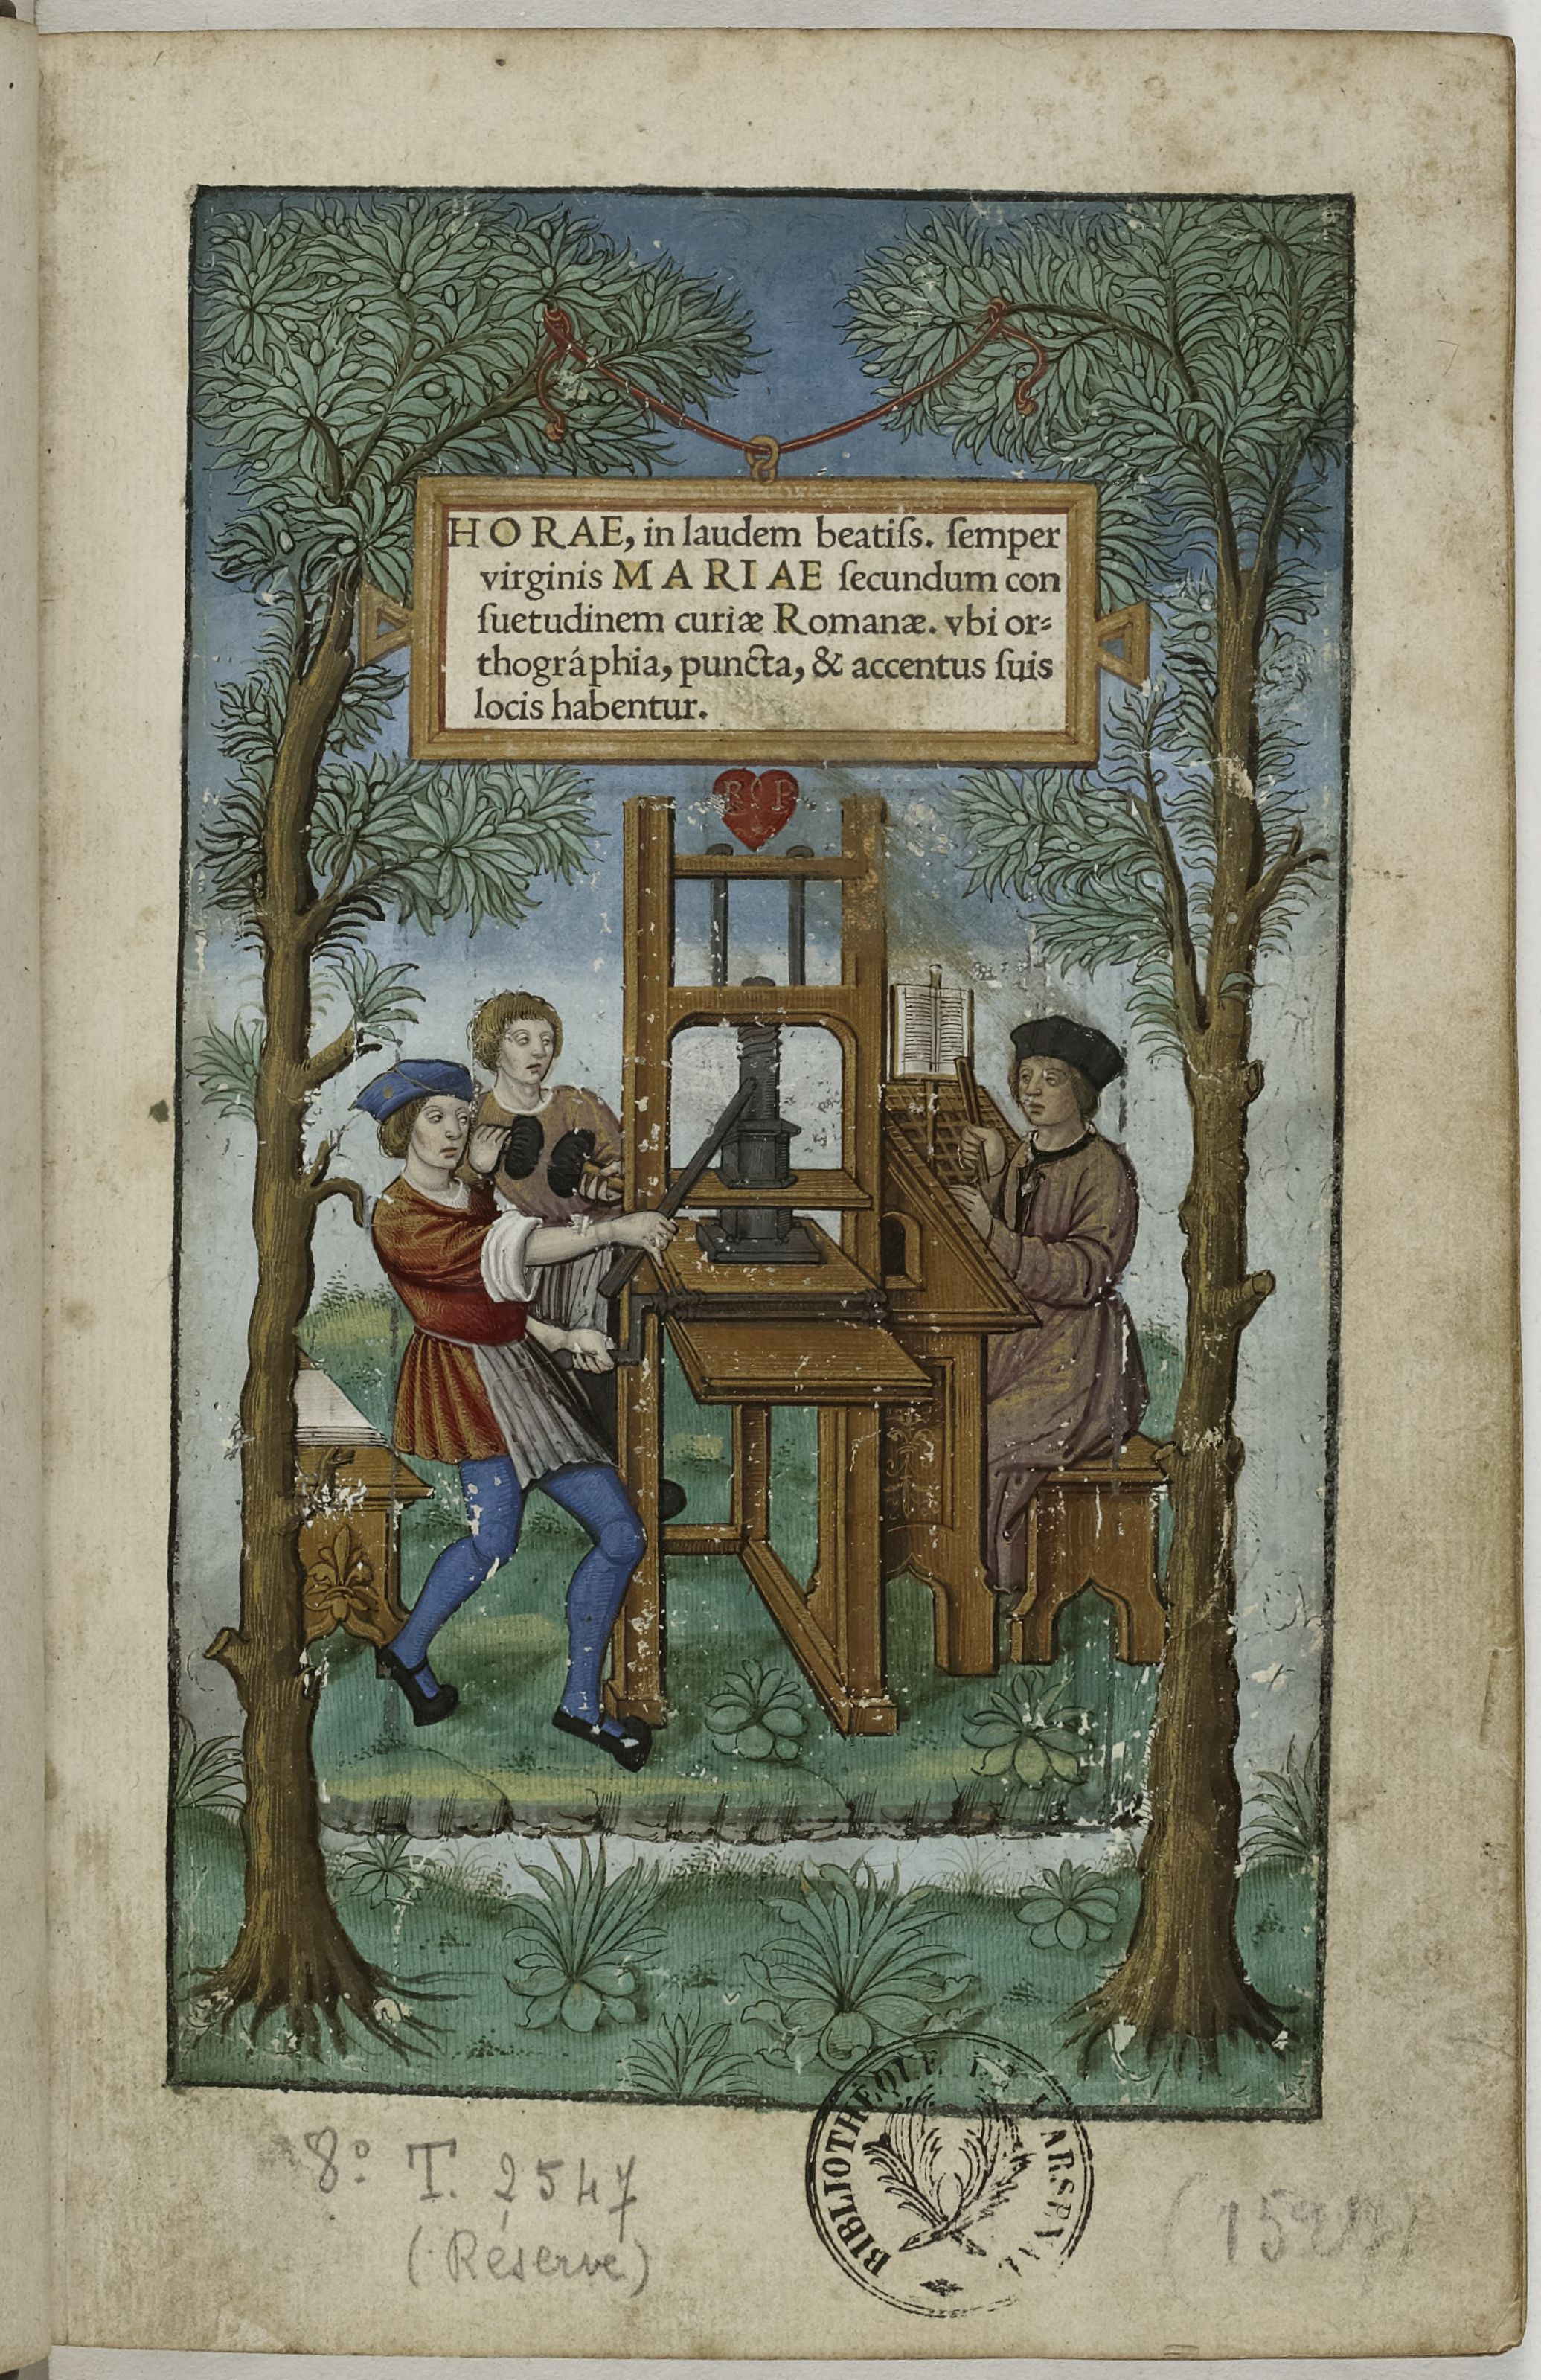 HORAE, in laudem beatiſs. ſemper
virginis MARIAE ſecundum con
ſuetudinem curiæ Romanæ. vbi or=
thográphia, puncta, & accentus ſuis
locis habentur.
R P
8º T. 2547
(Réserve)
BIBLIOTHEQUE DE L'ARSENAL